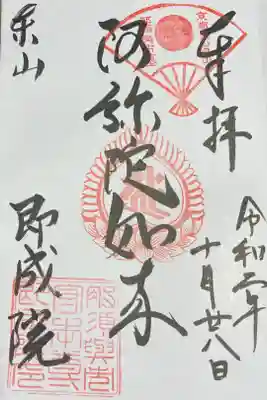 奉拝
令和二年
十月廿八日
阿弥陀如来
泉山
即成院